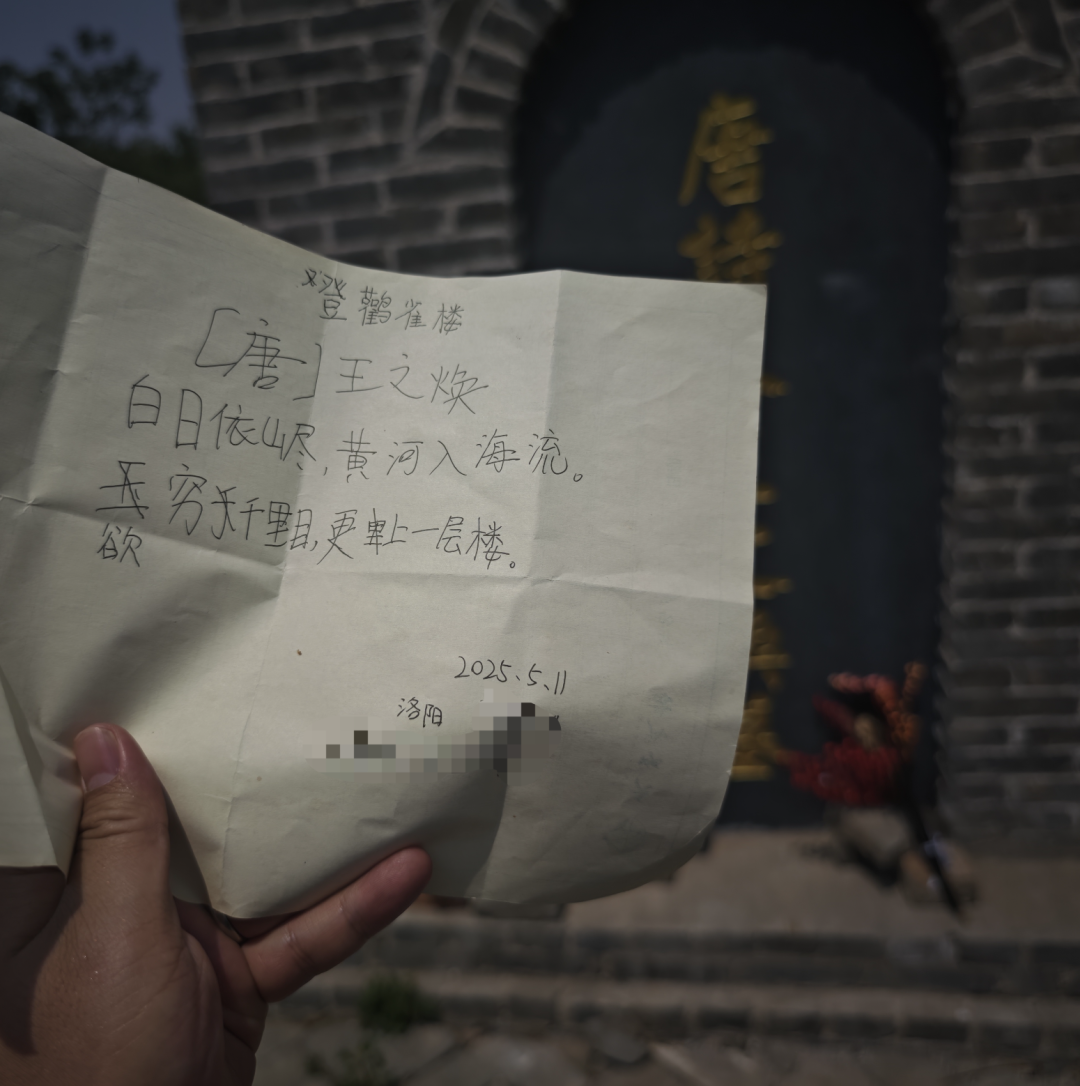 登鹳雀楼
[唐]王之焕
白日依山尽,黄河入海流。
欲穷千里目,更上一层楼。
2025.5.11
洛阳
唐
诗